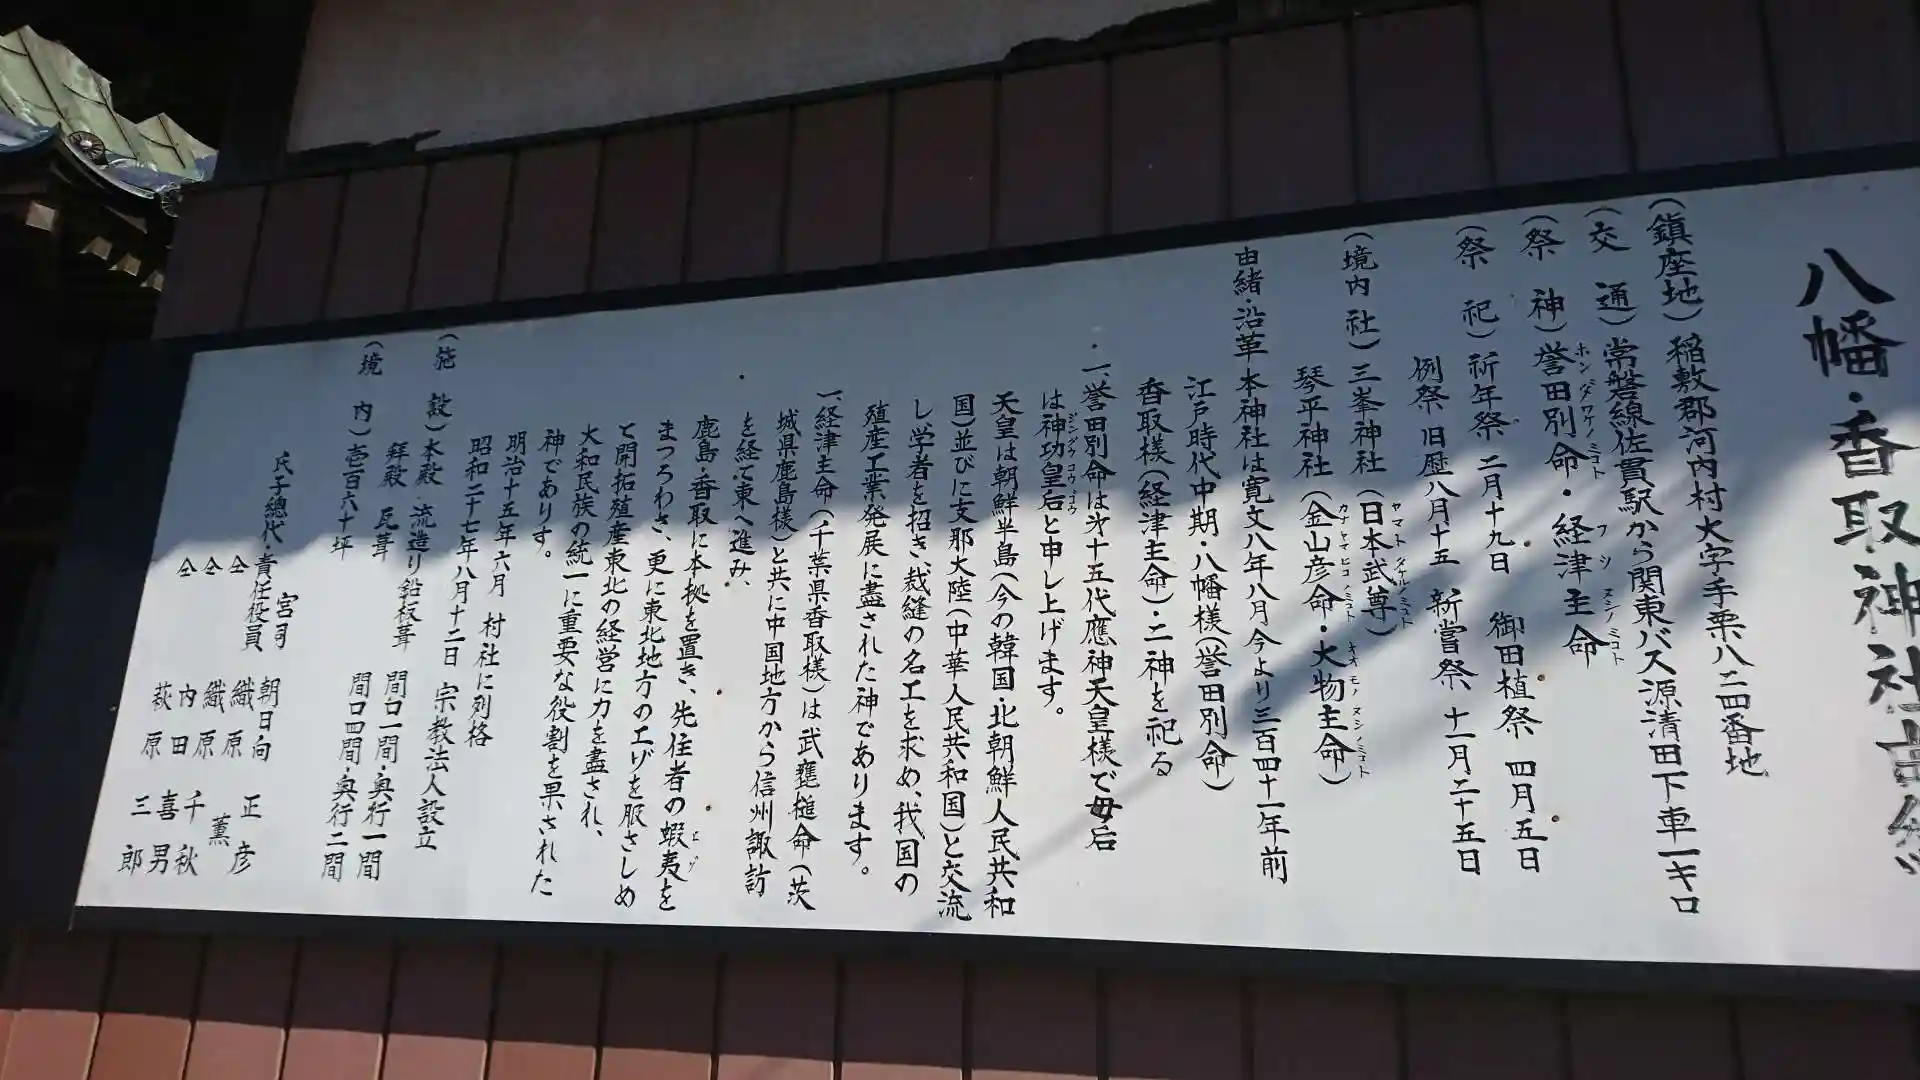 八幡・香取神社由緒
(鎮座地)稲敷郡河内村大字手栗八二四番地
(交　通)常磐線佐貫駅から関東バス源清田下車一キロ
(祭　神)誉田別命・経津主命
ホンダワケノミコト　フツヌシノミコト
(祭　祀)祈年祭 二月十九日　御田植祭 四月五日
例祭 旧暦八月十五　新嘗祭 十一月二十五日
(境内社)三峯神社(日本武尊)
ヤマトタケルノミコト
琴平神社(金山彦命・大物主命)
カナヤマヒコノミコト　オオモノヌシノミコト
由緒・沿革 本神社は寛文八年八月 今より三百四十一年前
江戸時代中期、八幡様(誉田別命)
香取様(経津主命)・二神を祀る
一、誉田別命は第十五代應神天皇様で母后
は神功皇后と申し上げます。
ジングウコウゴウ
天皇は朝鮮半島(今の韓国・北朝鮮人民共和
国)並びに支那大陸(中華人民共和国)と交流
し、学者を招き、裁縫の名工を求め、我国の
殖産工業発展に盡された神であります。
一、経津主命(千葉県香取様)は武甕槌命(茨
城県鹿島様)と共に中国地方から信州諏訪
を経て東へ進み、
鹿島・香取に本拠を置き、先住者の蝦夷を
エゾ
まつろわさ、更に東北地方のエゾを服さしめ
て開拓殖産東北の経営に力を盡され、
大和民族の統一に重要な役割を果された
神であります。
明治十五年六月　村社に列格
昭和二十七年八月十二日　宗教法人設立
(施　設)本殿　流造り鉛板葺　間口一間・奥行一間
拝殿　瓦葺　間口四間・奥行二間
(境　内)壱百六十坪
宮司　朝日向　正彦
氏子總代・責任役員　織原　薫
仝　織原　千秋
仝　内田　喜男
仝　萩原　三郎